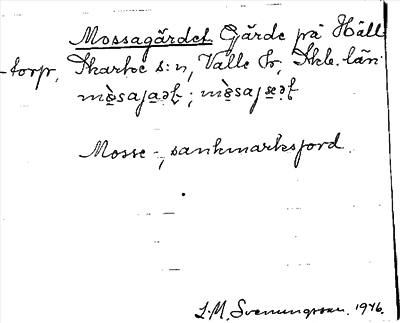 Mossagärdet Gärde på Häll
-torp, Skarke s:n, Valle hr, Skb. län
Mosse-, sankmarksjord.
L. M. Svenungsson. 1946.